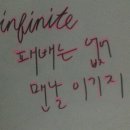 infinite
패배는 없어
맨날 이기지